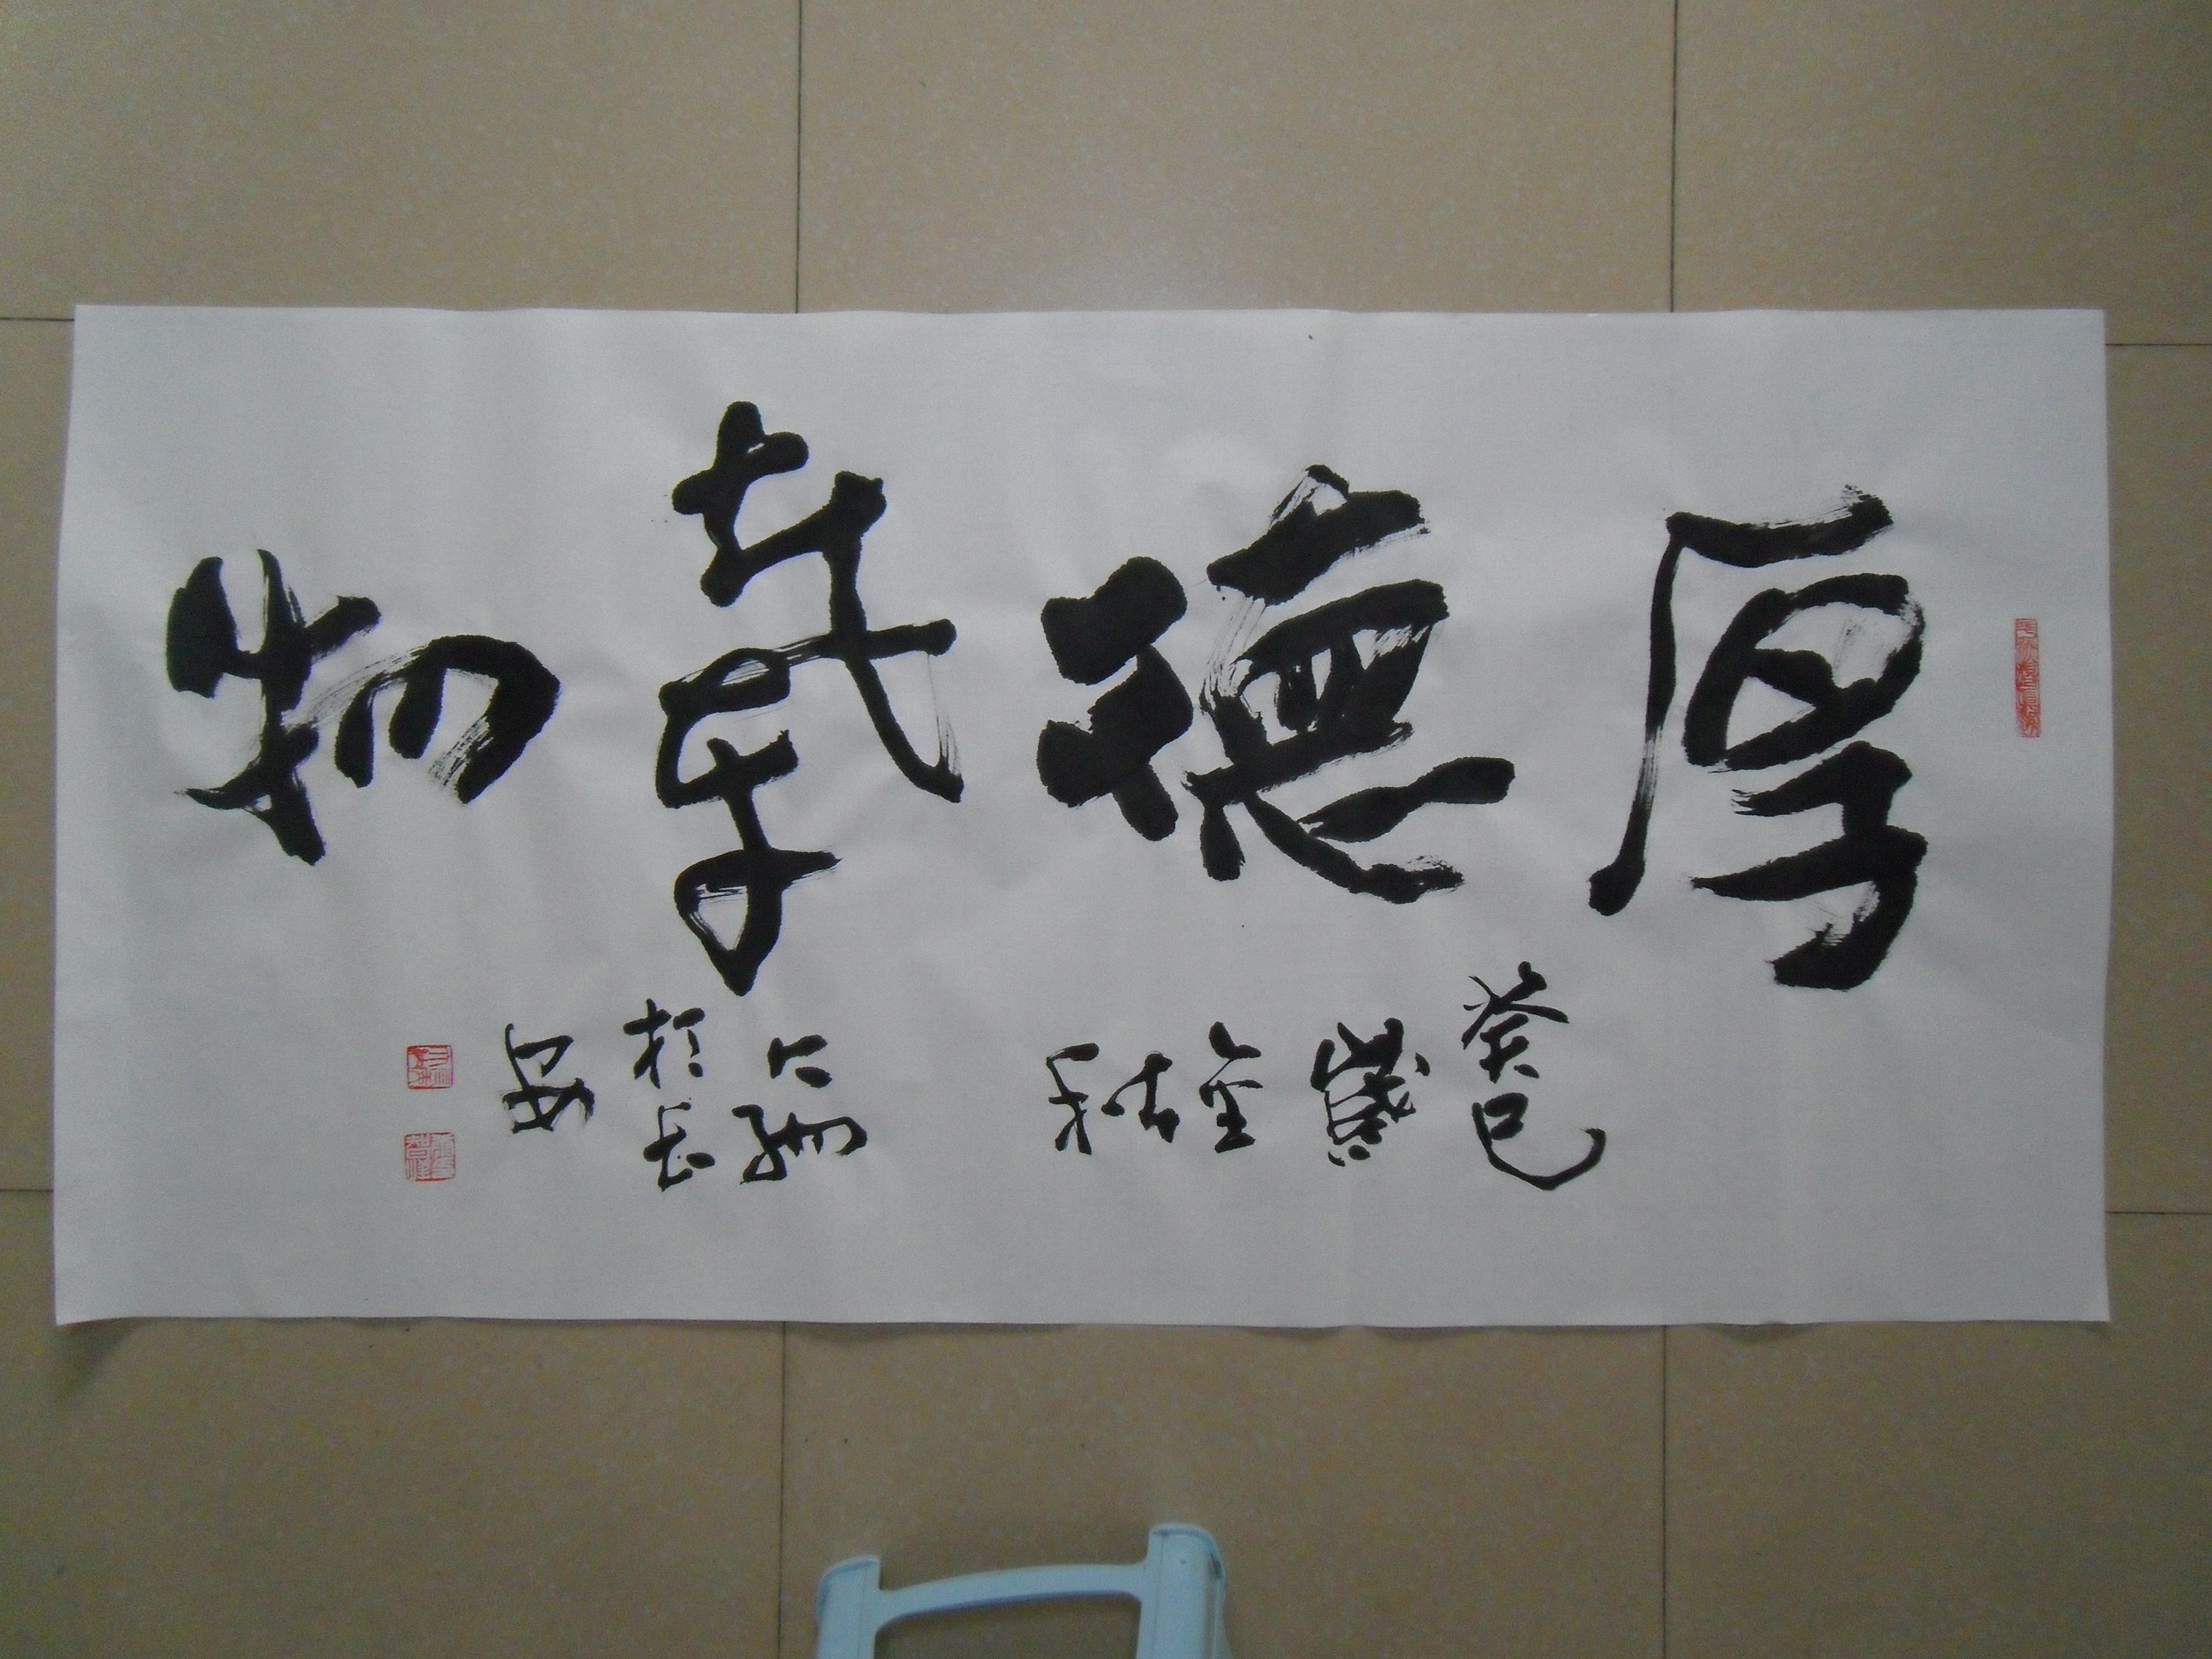 厚德載物
癸巳
歲
金
秋
於長
安